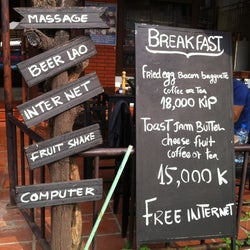 MASSAGE
BEER LAO
INTERNET
FRUIT SHAKE
COMPUTER
BREAKFAST
Fried egg Bacon baggutte
coffee or Tea
18,000 KIP
TOAST JAM BUTTER
cheese fruit
coffee or tea
15,000 K
FREE INTERNET